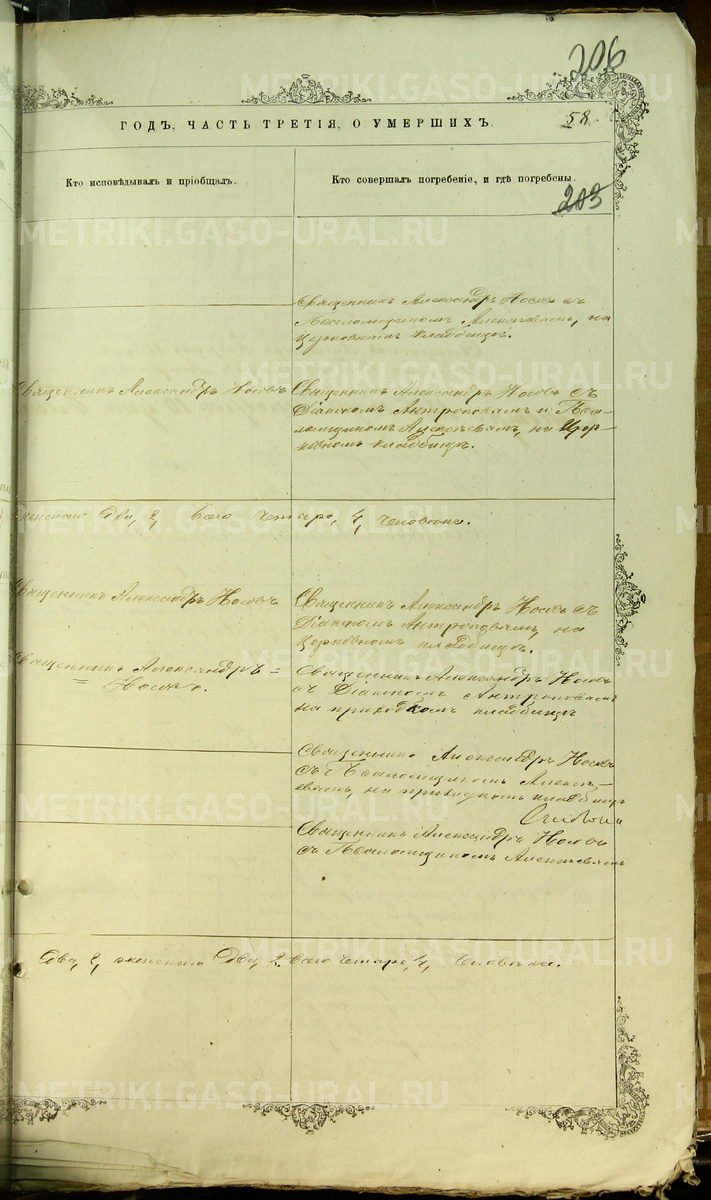 206
ГОДЪ, ЧАСТЬ ТРЕТІЯ, О УМЕРШИХЪ.
58.
Кто исповѣдывалъ и пріобщалъ.
Кто совершалъ погребеніе, и гдѣ погребены.
203
Священникъ Александръ Носовъ съ
Псаломщикомъ Алексѣевымъ, на
Церковномъ кладбищѣ.
Священникъ Александръ Носовъ
Священникъ Александръ Носовъ съ
Діакономъ Антроповымъ и Пса-
ломщикомъ Алексѣевымъ, на Цер-
ковномъ кладбищѣ.
женскаго Два, 2, Всего четыре, 4, человѣка.
Священникъ Александръ Носовъ
Священникъ Александръ Носовъ съ
Діакономъ Антроповымъ, на
Церковномъ кладбищѣ.
Священникъ Александръ =
= Носовъ.
Священникъ Александръ Носовъ
съ Діакономъ Антроповымъ
на приходскомъ кладбищѣ
Священникъ Александръ Носовъ
съ Псаломщикомъ Алексѣ-
евымъ, на приходскомъ кладбищѣ
Священникъ Александръ Носовъ
съ Псаломщикомъ Алексѣевымъ
Два, 2, женскаго Два, 2. Всего четыре, 4, человѣка.
METRIKI.GASO-URAL.RU